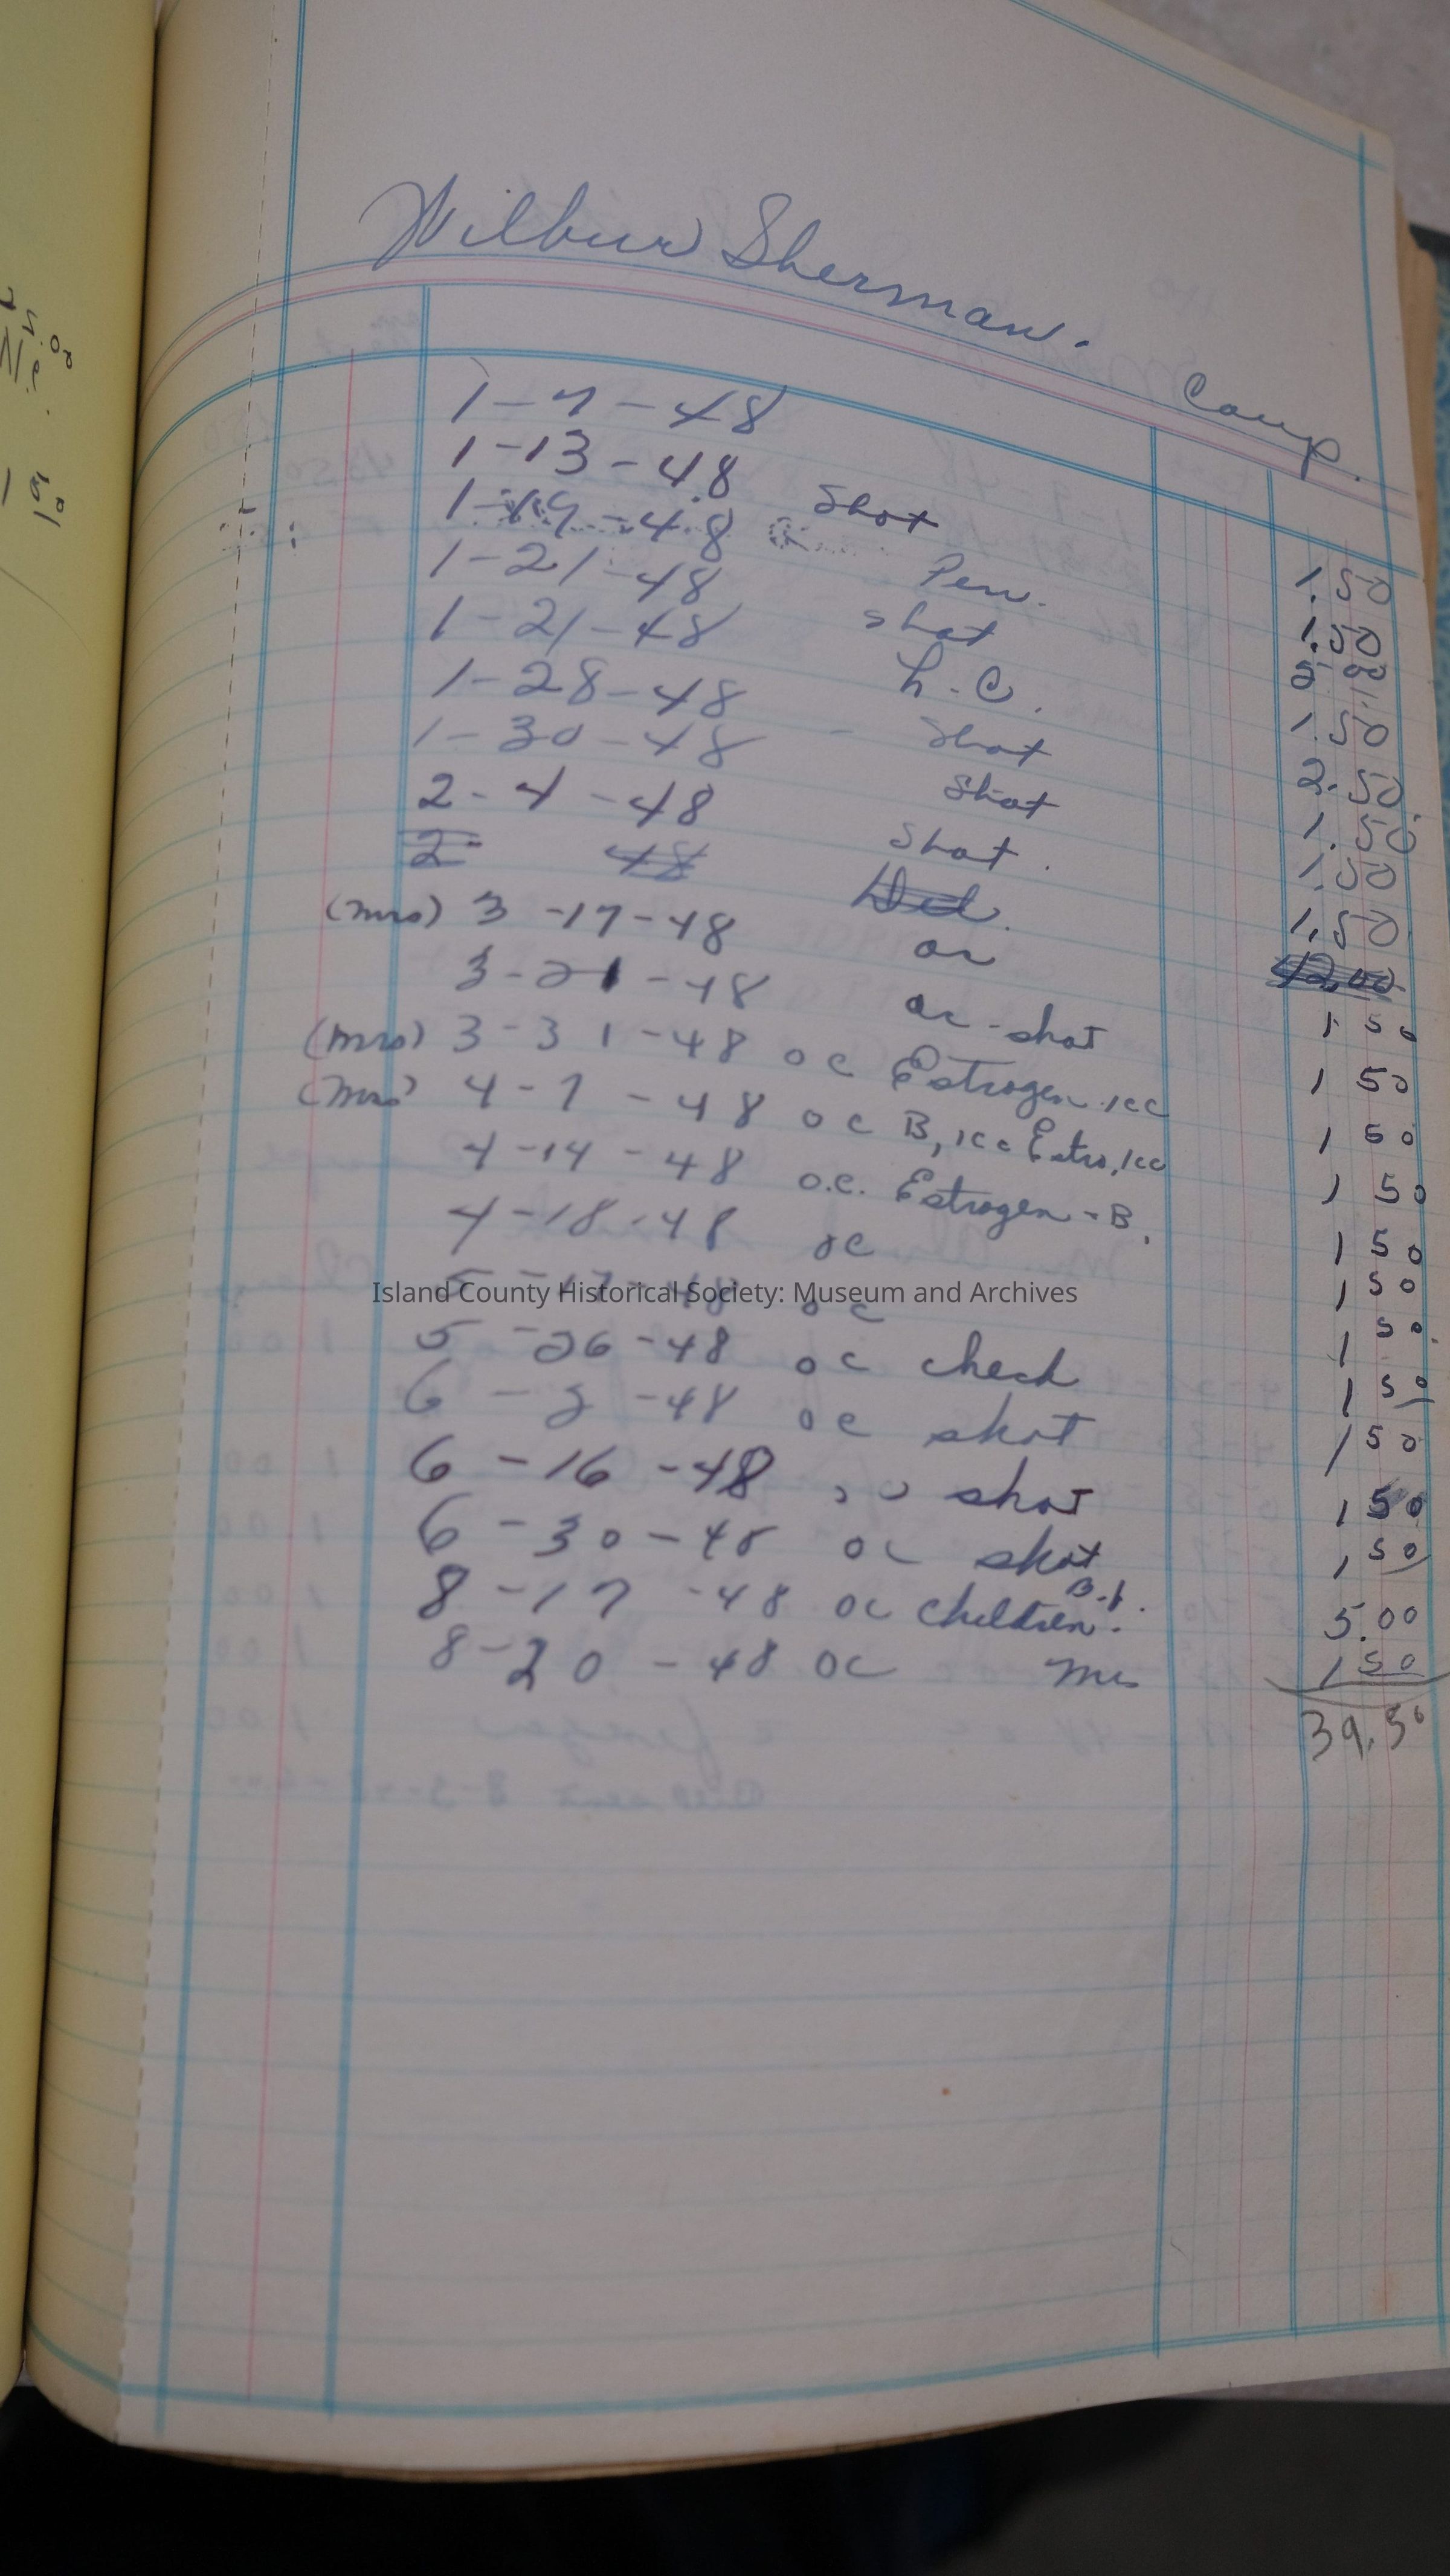 Wilbur Sherman.
Camp.
1-7-48 Shot 1.50
1-13-48 Pen. 1.50
1-19-48 shot
1-21-48 h.c. 1.50
1-21-48 Shot 2.50
1-28-48 - Shot 1.50
1-30-48 Shot 1.50
2-4-48 Shot. 1.50
2- 48 42.00
(Mrs) 3-17-48 oc 1 50
3-21-48 oc-shot 1 50
(Mrs) 3-31-48 oc Estrogen 1cc 1 50
(Mrs) 4-7-48 oc B, 1cc Estro, 1cc 1 50
4-14-48 o.c. Estrogen-B, 1 50
4-18-48 oc 1 50
5-17-48 oc 1 50
Island County Historical Society: Museum and Archives
5-26-48 oc check 1 50
6-2-48 oc shot 1 50
6-16-48 shot 1 50
6-30-48 oc shot 1 50
8-17-48 oc children. 5.00
8-20-48 oc Mrs 1 50
39.50